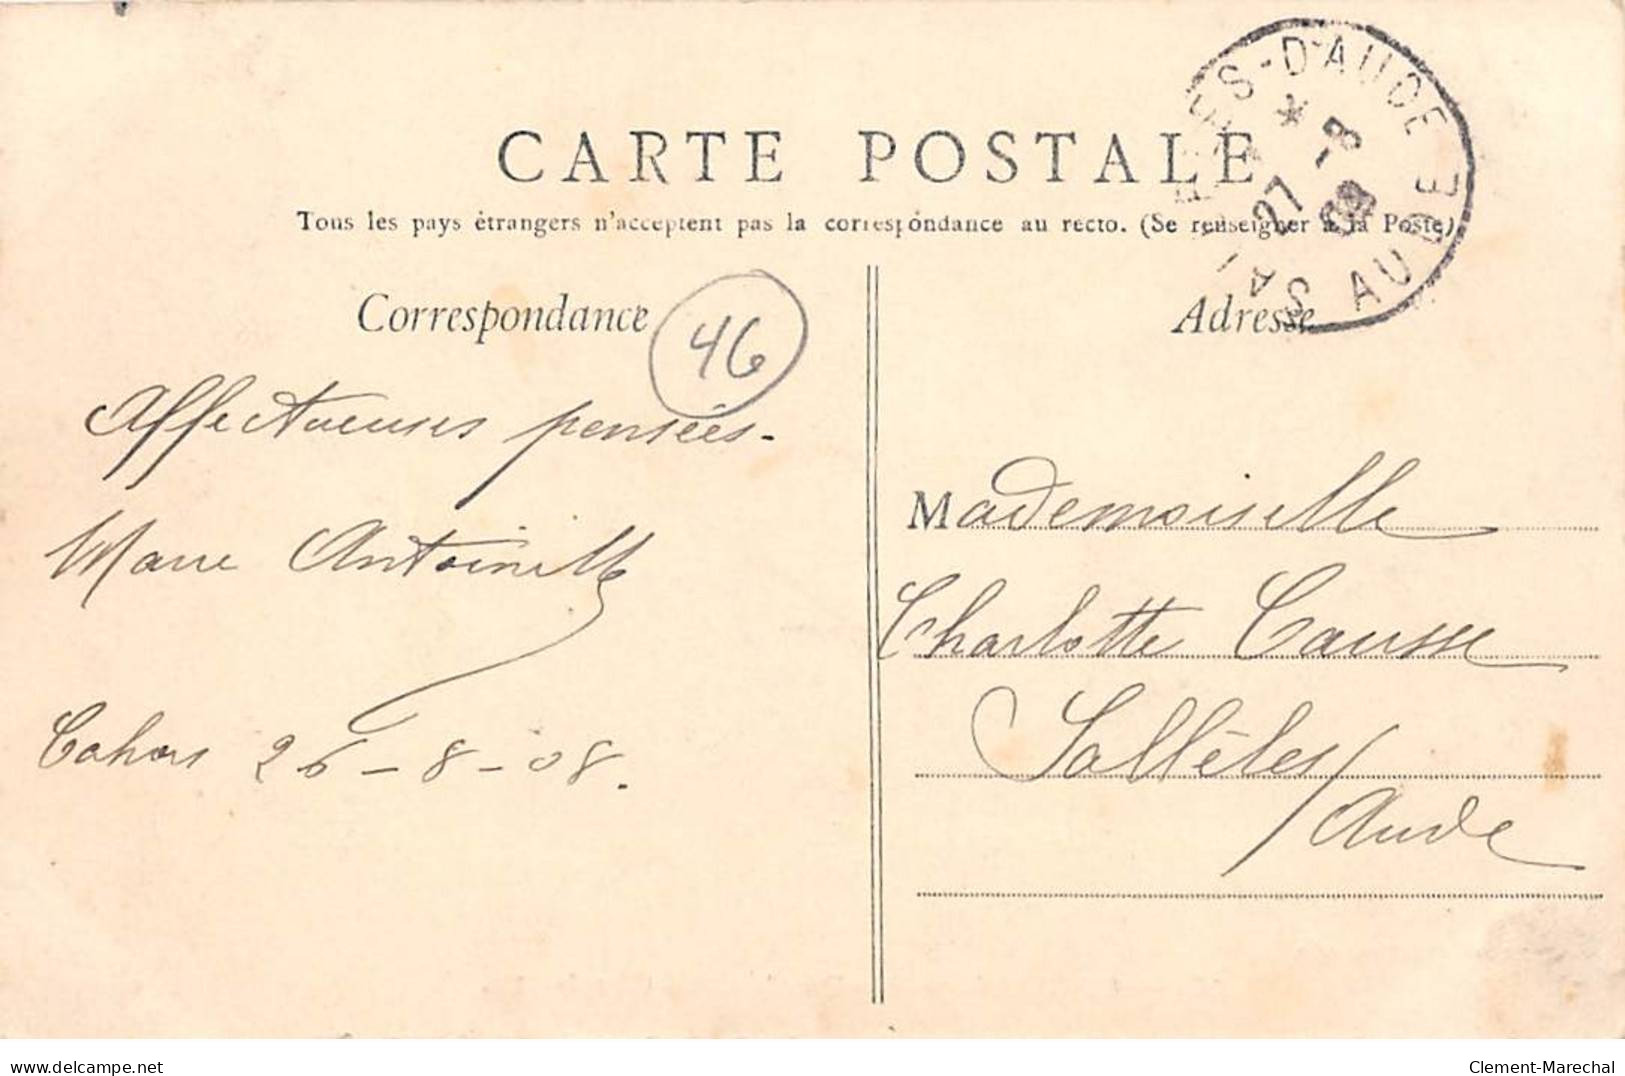 CARTE POSTALE
Tous les pays étrangers n'acceptent pas la correspondance au recto. (Se renseigner à la Poste)
Correspondance
46
Affectueuses pensées.
Marie Antoinette
Cahors 26-8-08.
SALLELES-D'AUDE
* 27 -8 08
AUDE
Adresse
Mademoiselle
Charlotte Causse
Sallèles/
Aude
delcampe.net
Clement-Marechal